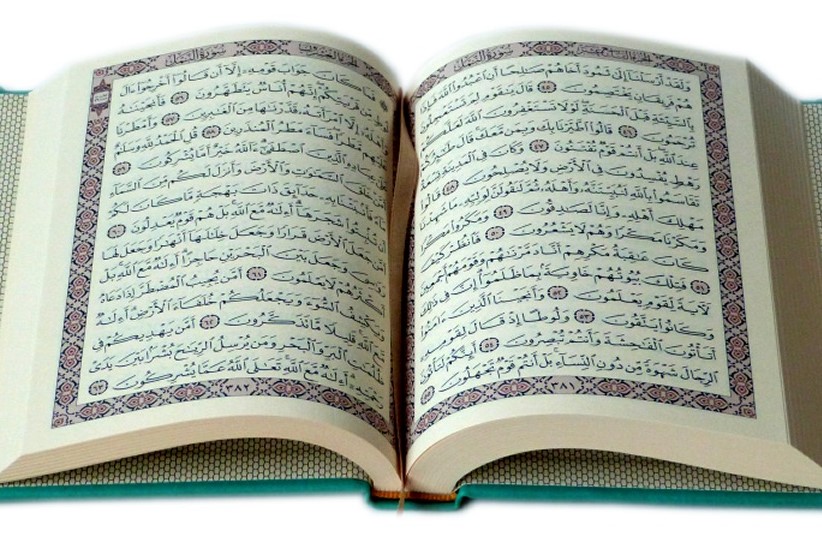 سُورَةُ النَّمْلِ
وَلَقَدْ أَرْسَلْنَا إِلَىٰ ثَمُودَ أَخَاهُمْ صَٰلِحًا أَنِ اعْبُدُوا اللَّهَ فَإِذَا
هُمْ فَرِيقَانِ يَخْتَصِمُونَ ٤٥ قَالَ يَٰقَوْمِ لِمَ تَسْتَعْجِلُونَ
بِالسَّيِّئَةِ قَبْلَ الْحَسَنَةِ لَوْلَا تَسْتَغْفِرُونَ اللَّهَ لَعَلَّكُمْ
تُرْحَمُونَ ٤٦ قَالُوا اطَّيَّرْنَا بِكَ وَبِمَن مَّعَكَ قَالَ طَٰئِرُكُمْ
عِندَ اللَّهِ بَلْ أَنتُمْ قَوْمٌ تُفْتَنُونَ ٤٧ وَكَانَ فِي الْمَدِينَةِ
رَهْطٍ يُفْسِدُونَ فِي الْأَرْضِ وَلَا يُصْلِحُونَ ٤٨ قَالُوا
تَقَاسَمُوا بِاللَّهِ لَنُبَيِّتَنَّهُ وَأَهْلَهُ ثُمَّ لَنَقُولَنَّ لِوَلِيِّهِ مَا شَهِدْنَا
مَهْلِكَ أَهْلِهِ وَإِنَّا لَصَٰدِقُونَ ٤٩ وَمَكَرُوا مَكْرًا
وَمَكَرْنَا مَكْرًا وَهُمْ لَا يَشْعُرُونَ ٥٠ فَانظُرْ كَيْفَ
كَانَ عَٰقِبَةُ مَكْرِهِمْ أَنَّا دَمَّرْنَٰهُمْ وَقَوْمَهُمْ أَجْمَعِينَ
٥١ فَتِلْكَ بُيُوتُهُمْ خَاوِيَةً بِمَا ظَلَمُوا إِنَّ فِي ذَٰلِكَ
لَآيَةً لِّقَوْمٍ يَعْلَمُونَ ٥٢ وَأَنجَيْنَا الَّذِينَ ءَامَنُوا
وَكَانُوا يَتَّقُونَ ٥٣ وَلُوطًا إِذْ قَالَ لِقَوْمِهِ
أَتَأْتُونَ الْفَٰحِشَةَ وَأَنتُمْ تُبْصِرُونَ ٥٤ أَئِنَّكُمْ لَتَأْتُونَ
الرِّجَالَ شَهْوَةً مِّن دُونِ النِّسَاءِ بَلْ أَنتُمْ قَوْمٌ تَجْهَلُونَ ٥٥
٣٨١
سُورَةُ النَّمْلِ
الجُزْءُ العِشْرُونَ
فَمَا كَانَ جَوَابَ قَوْمِهِ إِلَّا أَن قَالُوا أَخْرِجُوا ءَالَ
لُوطٍ مِّن قَرْيَتِكُمْ إِنَّهُمْ أُنَاسٌ يَتَطَهَّرُونَ ٥٦ فَأَنجَيْنَٰهُ
وَأَهْلَهُ إِلَّا امْرَأَتَهُ قَدَّرْنَٰهَا مِنَ الْغَٰبِرِينَ ٥٧ وَأَمْطَرْنَا
عَلَيْهِم مَّطَرًا فَسَاءَ مَطَرُ الْمُنذَرِينَ ٥٨ قُلِ الْحَمْدُ لِلَّهِ وَسَلَٰمٌ
عَلَىٰ عِبَادِهِ الَّذِينَ اصْطَفَىٰ ءَاللَّهُ خَيْرٌ أَمَّا يُشْرِكُونَ ٥٩
أَمَّنْ خَلَقَ السَّمَٰوَٰتِ وَالْأَرْضَ وَأَنزَلَ لَكُم مِّنَ السَّمَاءِ
مَاءً فَأَنبَتْنَا بِهِ حَدَائِقَ ذَاتَ بَهْجَةٍ مَّا كَانَ لَكُمْ
أَن تُنبِتُوا شَجَرَهَا أَءِلَٰهٌ مَّعَ اللَّهِ بَلْ هُمْ قَوْمٌ يَعْدِلُونَ ٦٠
أَمَّن جَعَلَ الْأَرْضَ قَرَارًا وَجَعَلَ خِلَٰلَهَا أَنْهَٰرًا وَجَعَلَ لَهَا
رَوَٰسِيَ وَجَعَلَ بَيْنَ الْبَحْرَيْنِ حَاجِزًا أَءِلَٰهٌ مَّعَ اللَّهِ بَلْ
أَكْثَرُهُمْ لَا يَعْلَمُونَ ٦١ أَمَّن يُجِيبُ الْمُضْطَرَّ إِذَا دَعَاهُ
وَيَكْشِفُ السُّوءَ وَيَجْعَلُكُمْ خُلَفَاءَ الْأَرْضِ أَءِلَٰهٌ
مَّعَ اللَّهِ قَلِيلًا مَّا تَذَكَّرُونَ ٦٢ أَمَّن يَهْدِيكُمْ فِي
ظُلُمَٰتِ الْبَرِّ وَالْبَحْرِ وَمَن يُرْسِلُ الرِّيَٰحَ بُشْرًا بَيْنَ يَدَيْ
رَحْمَتِهِ أَءِلَٰهٌ مَّعَ اللَّهِ تَعَٰلَى اللَّهُ عَمَّا يُشْرِكُونَ ٦٣
٣٨٢